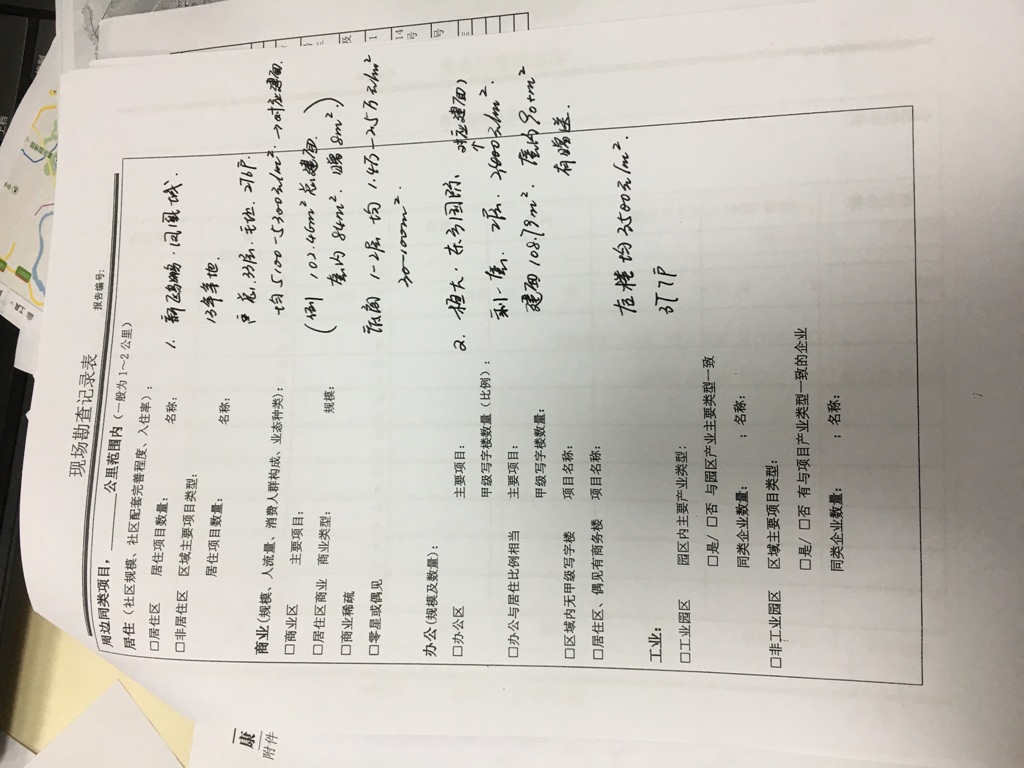 现场勘查记录表
报告编号:
周边同类项目,______公里范围内(一般为1~2公里)
居住(社区规模、社区配套完善程度、入住率):
□居住区 居住项目数量: 名称:
□非居住区 区域主要项目类型:
居住项目数量: 名称:
商业(规模、人流量、消费人群构成、业态种类):
□商业区 主要项目:
□居住区商业 商业类型: 规模:
□商业稀疏
□零星或偶见
办公(规模及数量):
□办公区 主要项目:
甲级写字楼数量(比例):
□办公与居住比例相当 主要项目:
甲级写字楼数量:
□区域内无甲级写字楼 项目名称:
□居住区、偶见有商务楼 项目名称:
工业:
□工业园区 园区内主要产业类型:
□是/ □否 与园区产业主要类型一致
同类企业数量: ; 名称:
□非工业园区 区域主要项目类型:
□是/ □否 有与项目产业类型一致的企业
同类企业数量: ; 名称:
1. 新 鹏·凤凰城.
13年拿地.
33层. 276户.
均5100-5300元/m². →对应建面.
(例 102.46m² 总建面.
套内84m². 赠8m².)
1-2层 均1.4万-2.5万元/m²
30-100m².
2. 恒大·东方国际. 对应建面)
剩一层. 2层. 3600元/m².
建面108.79m². 套内90+m²
有赠送.
均3500元/m².
康
附件
14
号